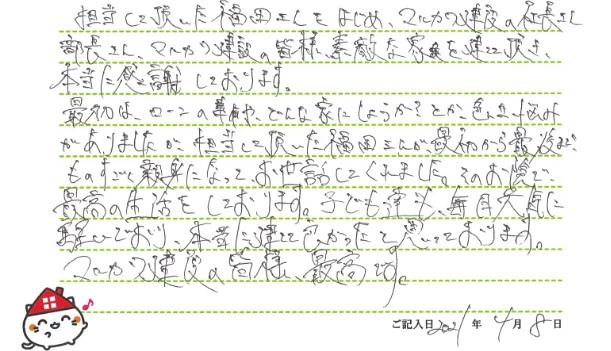 担当して頂いた福田さんをはじめ、マルカワ建設の社長さん
部長さん、マルカワ建設の皆様、素敵な家を建て頂き、
本当に感謝しております。
最初は、ローンの事や、どんな家にしようか?とか、色々悩み
がありましたが、担当して頂いた福田さんが最初から最後まで
ものすごく親身になってお世話してくれました。そのお陰で、
最高の生活をしております。子ども達も、毎日元気に
おり、本当に建ててよかったと思っております。
マルカワ建設の皆様、最高です。
ご記入日2021年4月8日